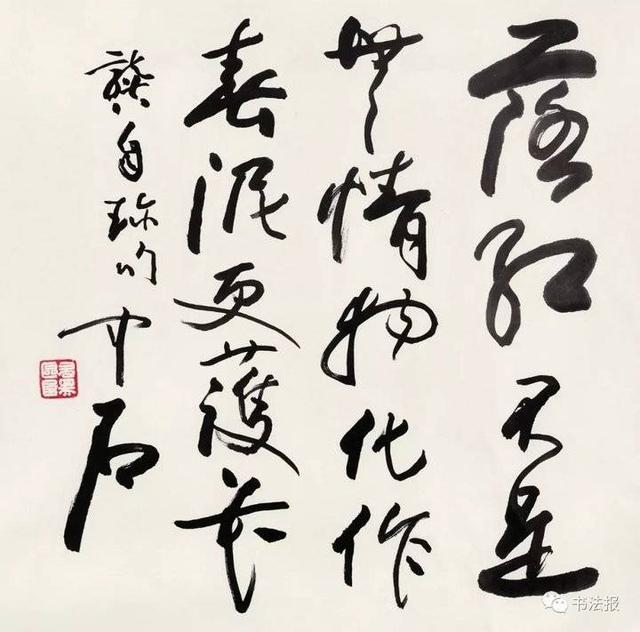 落紅不是
無情物化作
春泥更護花
龔自珍句 中石
书法报